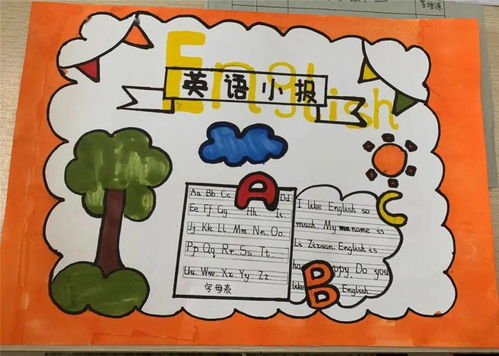 English
英语小报
A
Aa Bb Cc Dd
Ee Ff Gg Hh Ii
Jj Kk Ll Mm Nn Oo
Pp Qq Rr Ss Tt
Uu Vv Ww Xx Yy Zz
字母表
C
I like English so
much. My name is
Li Zixuan. English is
Do you
like English
B